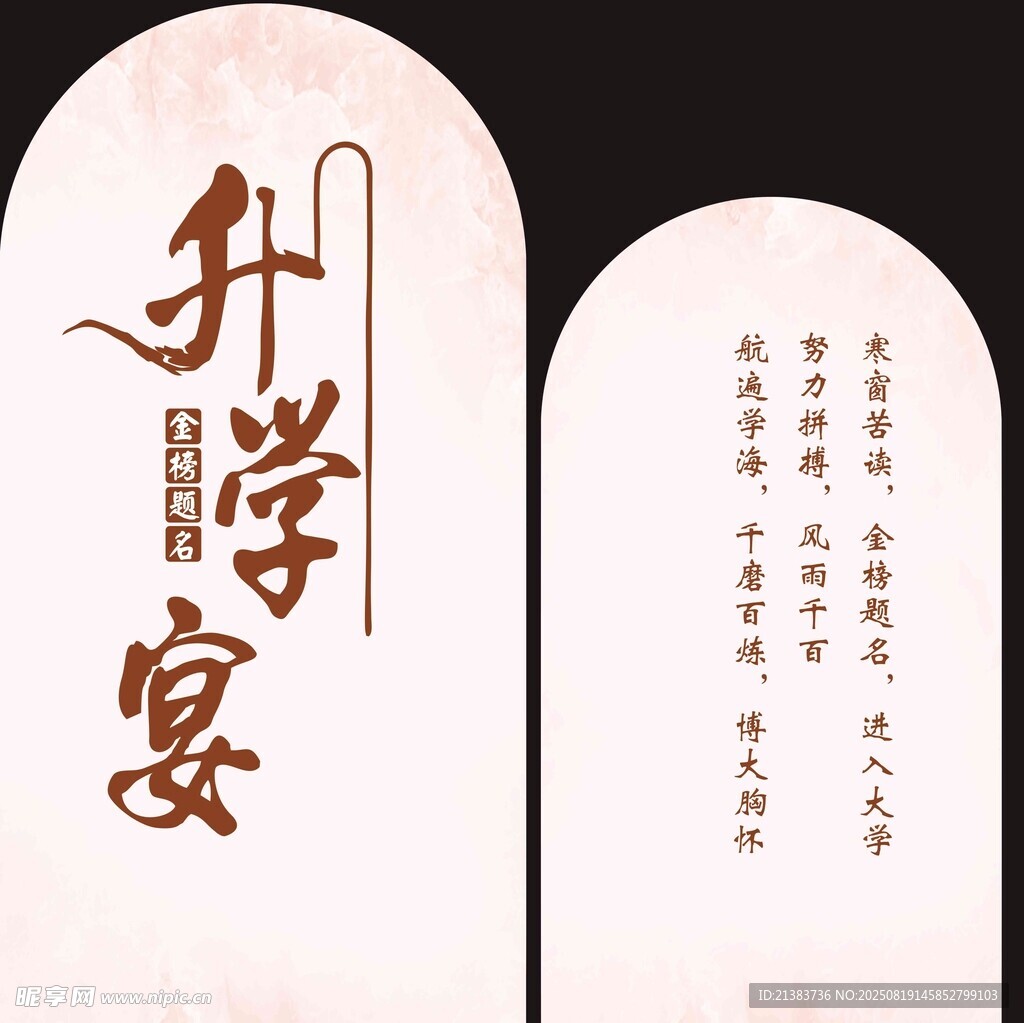 升学宴
金榜题名
寒窗苦读，金榜题名，进入大学
努力拼搏，风雨千百
航遍学海，千磨百炼，博大胸怀
昵享网 www.nipic.cn
ID:21383736 NO:20250819145852799103